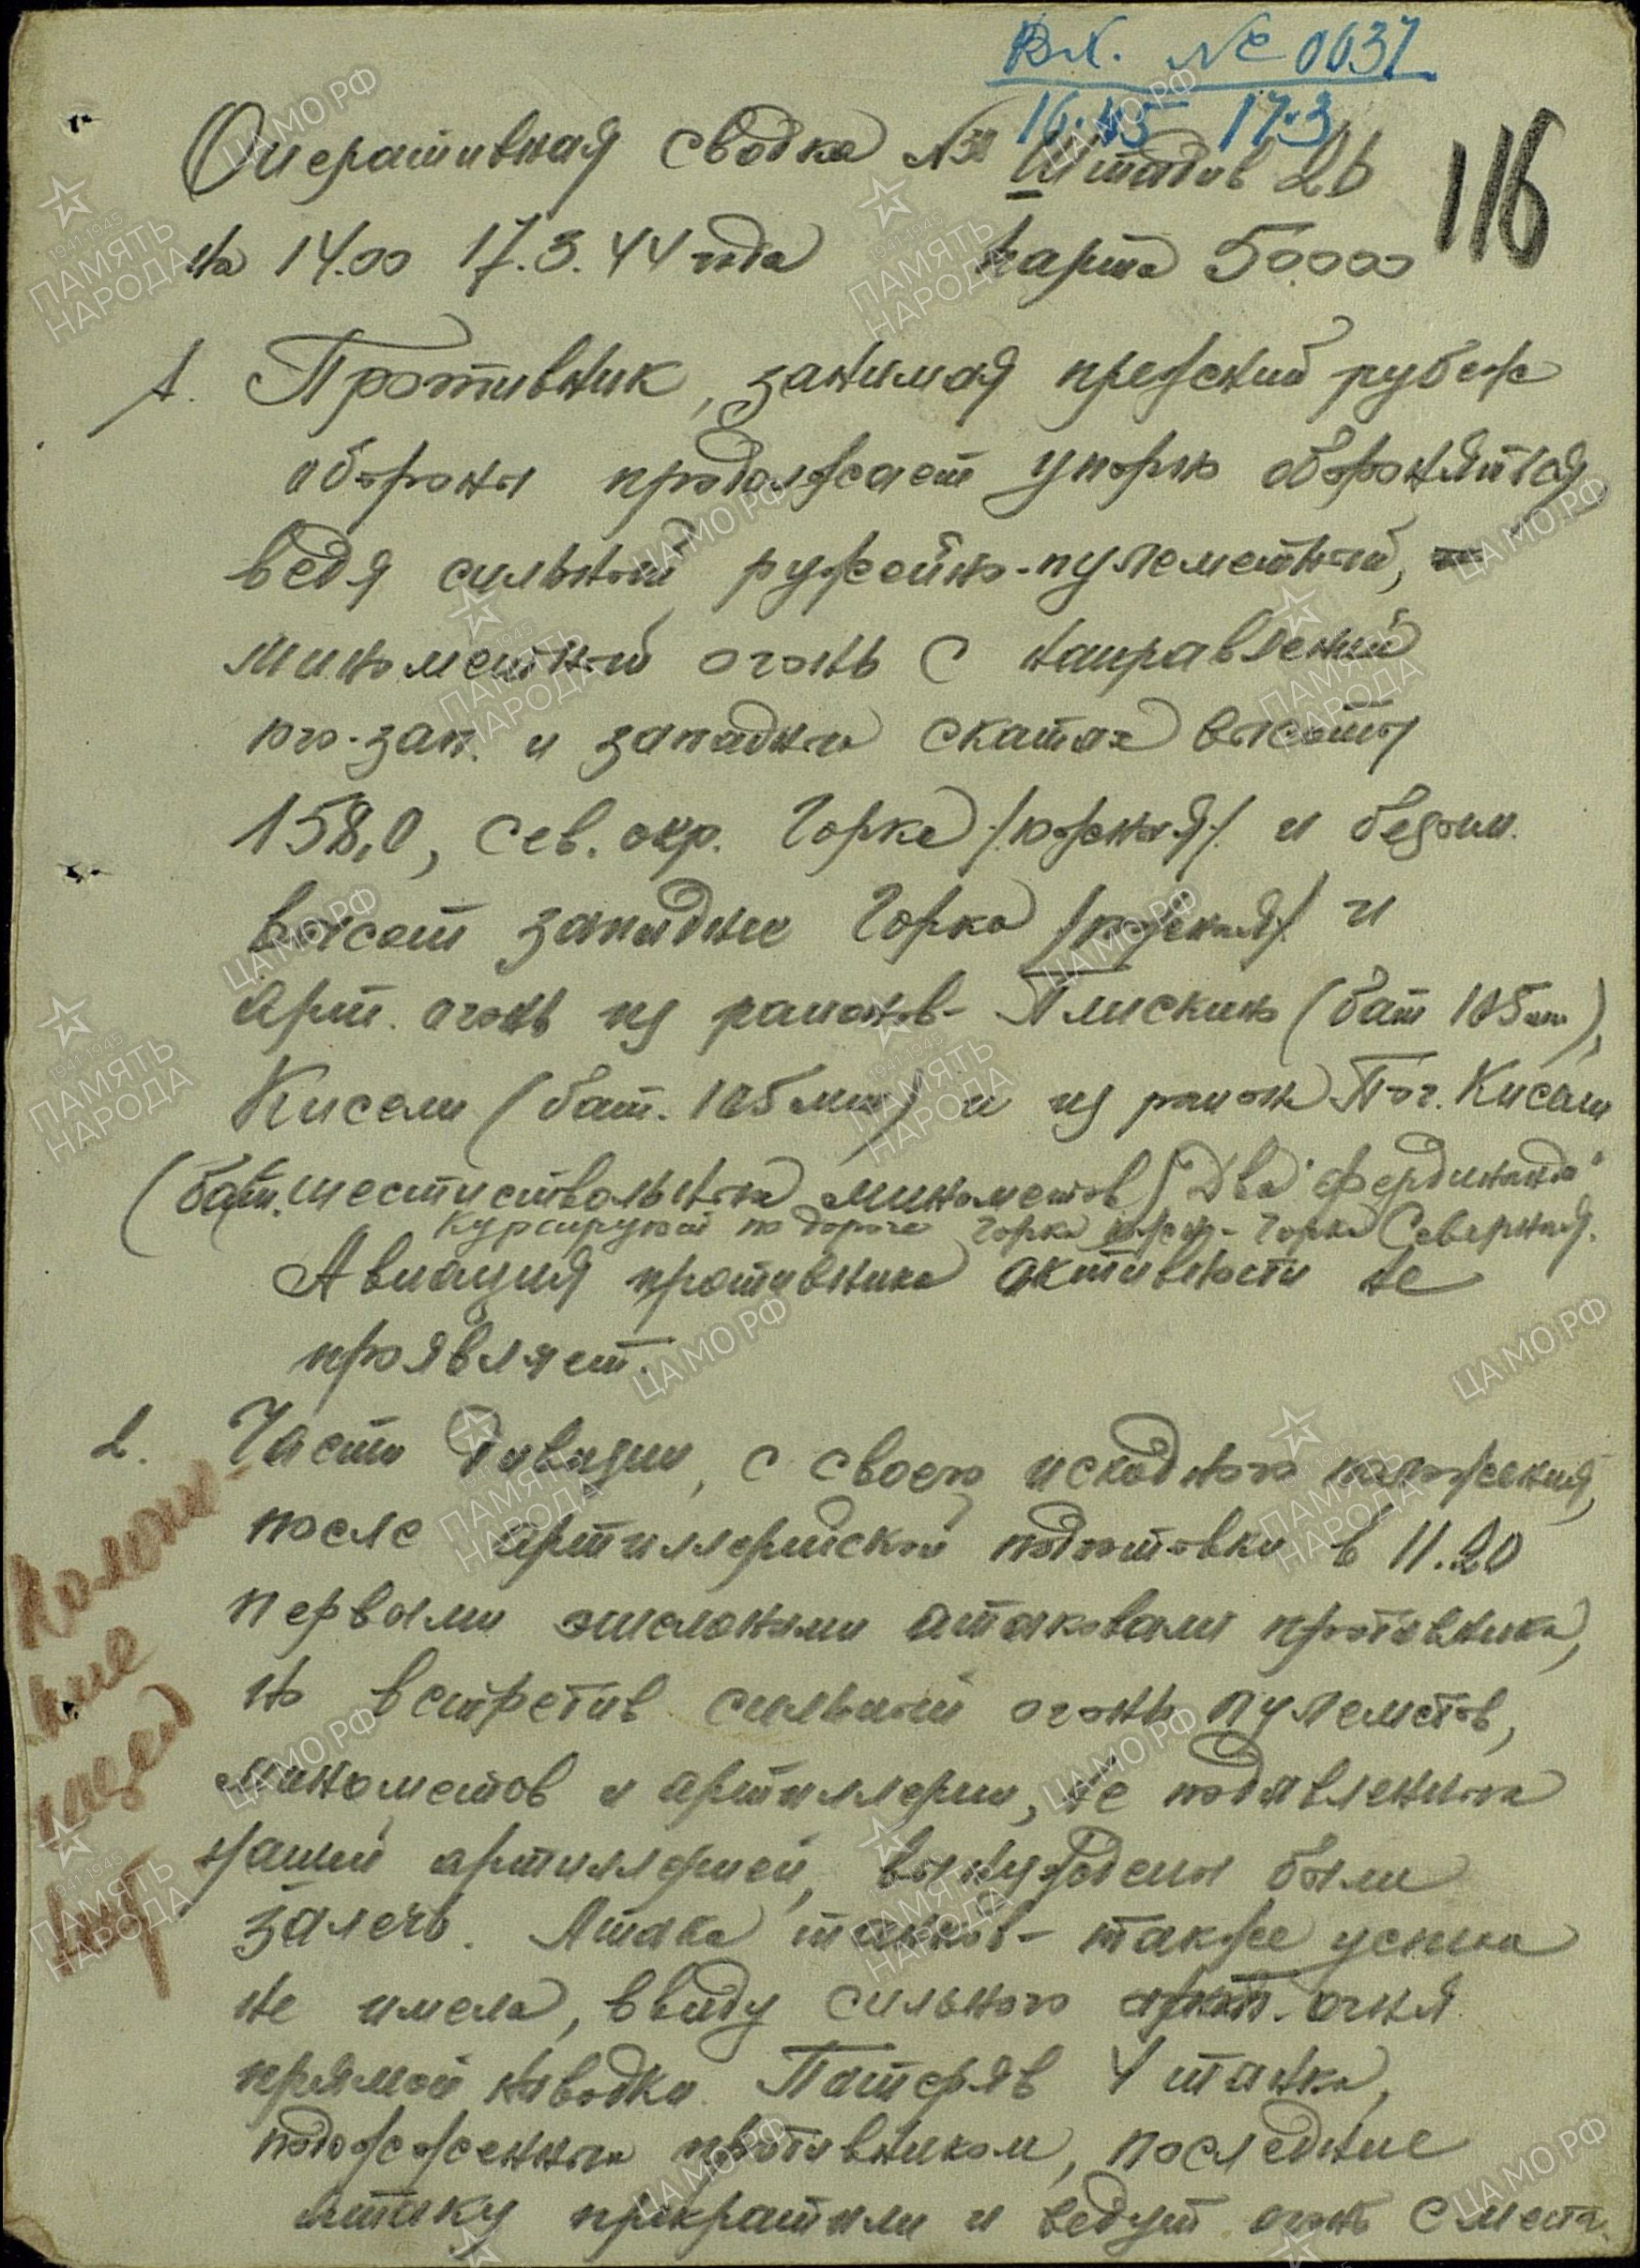 Вх. № 0037
16.45 17.3
116
Оперативная сводка №38 Штадив 26
на 14.00 17.3.44 года карта 50000
1. Противник, занимая прежний рубеж
обороны продолжает упорно обороняться
ведя сильный ружейно-пулеметный,
минометный огонь с направлений
юго-зап. и западных скатах высоты
158,0, сев. окр. Горка /южная/ и безым.
высот западнее Горка /южная/ и
арт. огонь из районов - Плискино (бат 105 мм),
Кисели (бат. 105 мм) и из района Пог. Кисели
(бат. шестиствольных минометов) Два "Фердинанда"
курсируют по дороге Горка южн - Горка Северная.
Авиация противника активности не
проявляет.
2. Части дивизии, с своего исходного положения,
после артиллерийской подготовки в 11.20
первыми эшелонами атаковали противника,
но встретив сильный огонь пулеметов,
минометов и артиллерии, не подавленных
нашей артиллерией, вынуждены были
залечь. Атака танков - также успеха
не имела, ввиду сильного огня
прямой наводки. Потеряв 4 танка,
подожженных противником, последние
атаку прекратили и ведут огонь с места.